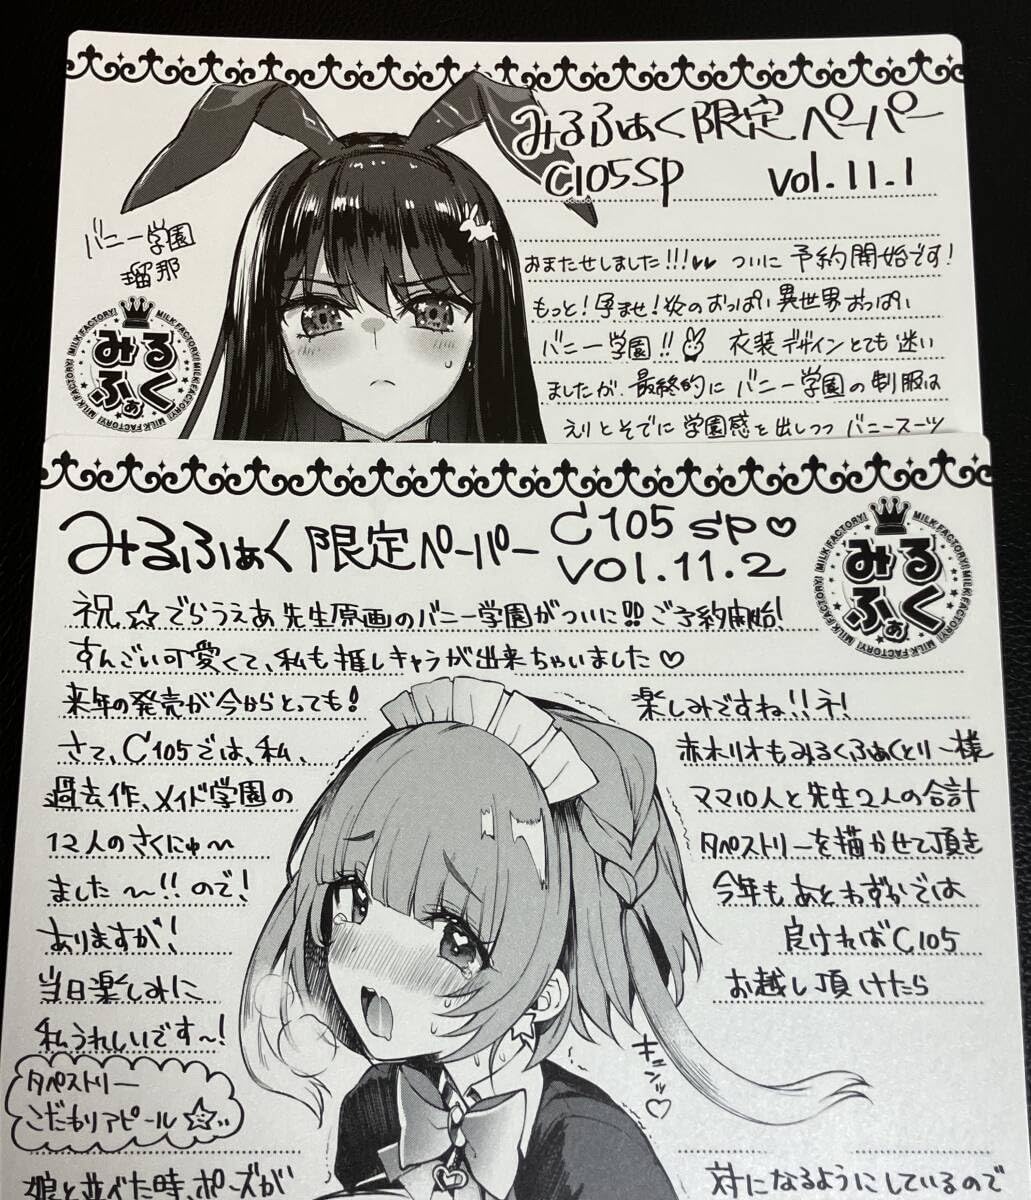 みるふぁく限定ペーパー
C105SP vol.11.1
バニー学園
瑠那
おまたせしました!!! ついに 予約開始です!
もっと!孕ませ!炎のおっぱい異世界おっぱい
バニー学園!! 衣装デザインとても迷い
ましたが、最終的にバニー学園の制服は
えりとそでに学園感を出しつつ バニースーツ
MILK FACTORY!
みる
ふぁく
みるふぁく限定ペーパー C105 SP♡
vol.11.2
MILK FACTORY!
みる
ふぁく
祝☆でらうえあ先生原画のバニー学園がついに!!ご予約開始!
すんごい可愛くて、私も推しキャラが出来ちゃいました♡
来年の発売が今からとっても! 楽しみですね!!ネ!
さて、C105では、私、 赤木リオもみるくふぁくとりー様
過去作、メイド学園の ママ10人と先生2人の合計
12人のさくにゅ〜 タペストリーを描かせて頂き
ました〜!!ので! 今年もあとわずかでは
ありますが! 良ければC105
当日楽しみに お越し頂けたら
私うれしいです〜!
キュンッ♡
タペストリー
こだわりアピール☆
娘と並べた時、ポーズが 対になるようにしているので